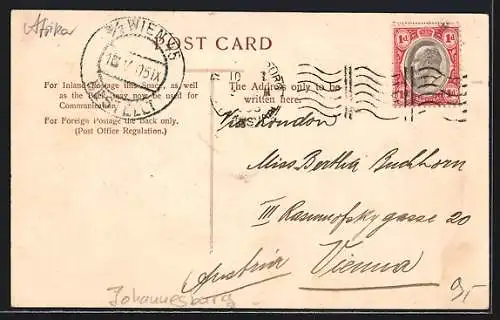 Afrika
POST CARD
3/1 WIEN 65
BESTELLT
1d 1d
For Inland Postage this Space, as well
as the Back may now be used for
Communication.
For Foreign Postage the Back only.
(Post Office Regulation.)
The Address only to be
written here.
Via London
Miss Bertha Buchhorn
III Rasumofskygasse 20
Austria Vienna
Johannesburg